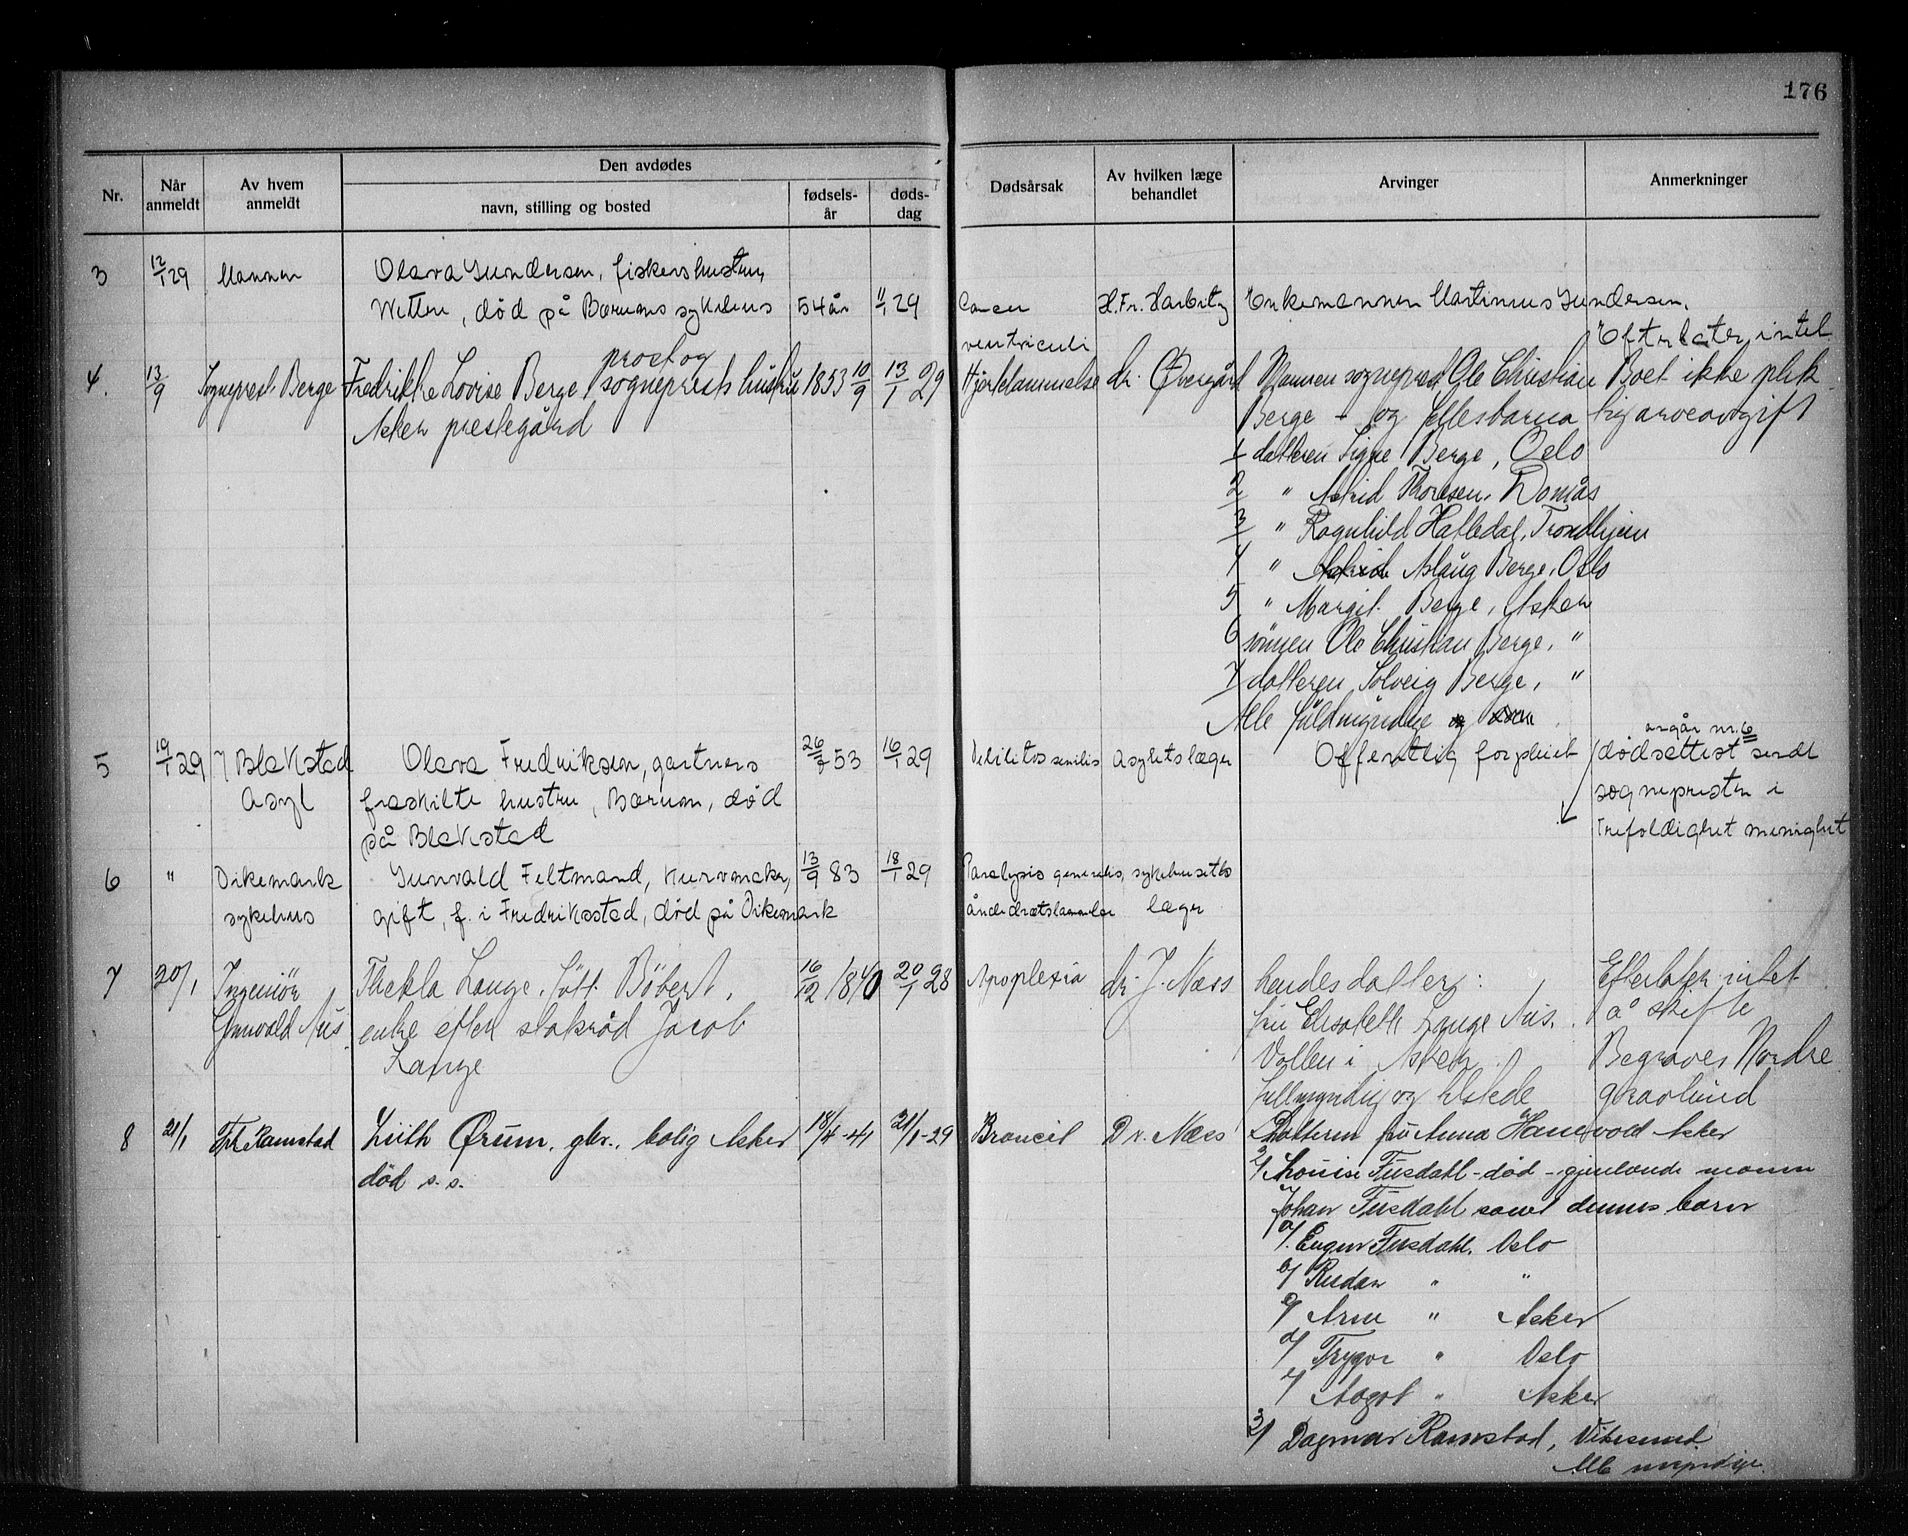 176
Nr.
Når anmeldt
Av hvem anmeldt
Den avdødes
navn, stilling og bosted
fødsels-år
døds-dag
Dødsårsak
Av hvilken læge behandlet
Arvinger
Anmerkninger
3 12/1 29 Mannen Olava Gundersen, fiskershustru,
Wettre, død på Bærums sykehus 54 år 11/1 29 Cancer H. Fr. Harbitz Enkemannen Martinius Gundersen.
ventriculi Efterlater intet
prost og
4. 13/9 Sogneprest Berge Fredrikke Lovise Berge, sogneprests hustru 1853 10/9 13/1 29 Hjertelammelse dr. Øvergård Mannen sogneprest Ole Christian Boet ikke plik-
Asker prestegård Berge - og fellesbarna tig arveavgift
1 datteren Signe Berge, Oslo
2 " Astrid Thoresen, Domås
3 " Ragnhild Hatledal, Trondhjem
4 " Astrid Aslaug Berge, Oslo
5 " Margit Berge, Asker
6 sönnen Ole Christian Berge, "
7 datteren Solveig Berge, "
Alle fuldmyndige og
angår nr. 6
5 19/1 29 Blakstad Olava Fredriksen, gartners 26/7 53 16/1 29 Debilitas senilis Asylets læger Offentlig forpleiet dødsattest sendt
Asyl fraskilte hustru, Bærum, død sognepresten i
på Blakstad Trefoldighet menighet
6 " Dikemark Gunvald Feltmand, kurvmaker, 13/9 83 18/1 29 Paralysis generalis, sykehusets
sykehus gift, f. i Fredrikstad, död på Dikemark åndedrætslammelse læger
7 20/1 Ingeniör Thekla Lange, född Böbert, 16/12 1840 20/1 28 Apoplexia dr. J. Næss hendes datter: Efterlater intet
Gunvald Aus enke efter slaksråd Jacob fru Elisabeth Lange Aus. å skifte
Lange Vollen i Asker. Begraves Nordre
fullmyndig og tilstede gravlund
8 21/1 Fr. Ramstad Lüth Ørum, gbr., bolig Asker 18/4-41 21/1-29 Broncit Dr. Næss 1/ Datteren fru Anna Hanevold Asker
død s. s. 2/ Louise Fusdahl - død - gjenlevende mann
Johan Fusdahl samt dennes barn
a/ Eugen Fusdahl, Oslo
b/ Reidar " "
c/ Arne " Asker
d/ Trygve " Oslo
e/ Aagot " Asker
3/ Dagmar Ramstad, Vikesund.
Alle myndige.